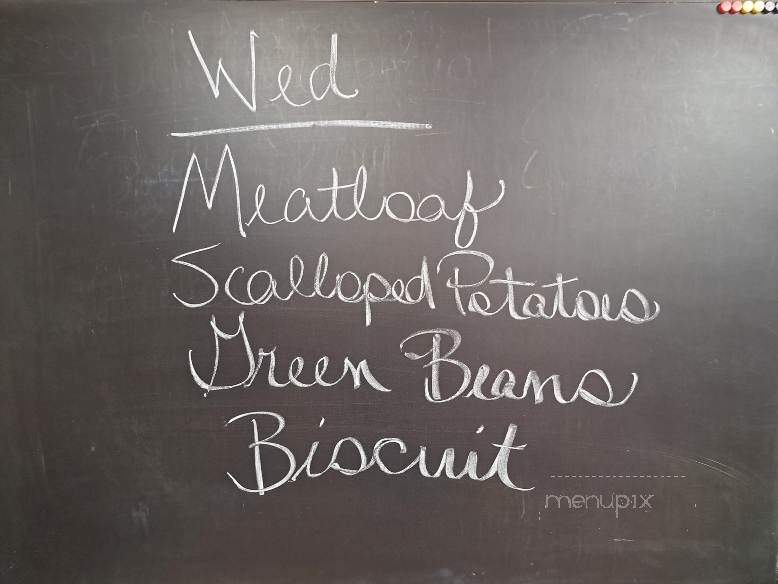 Wed
Meatloaf
Scalloped Potatoes
Green Beans
Biscuit
menupix